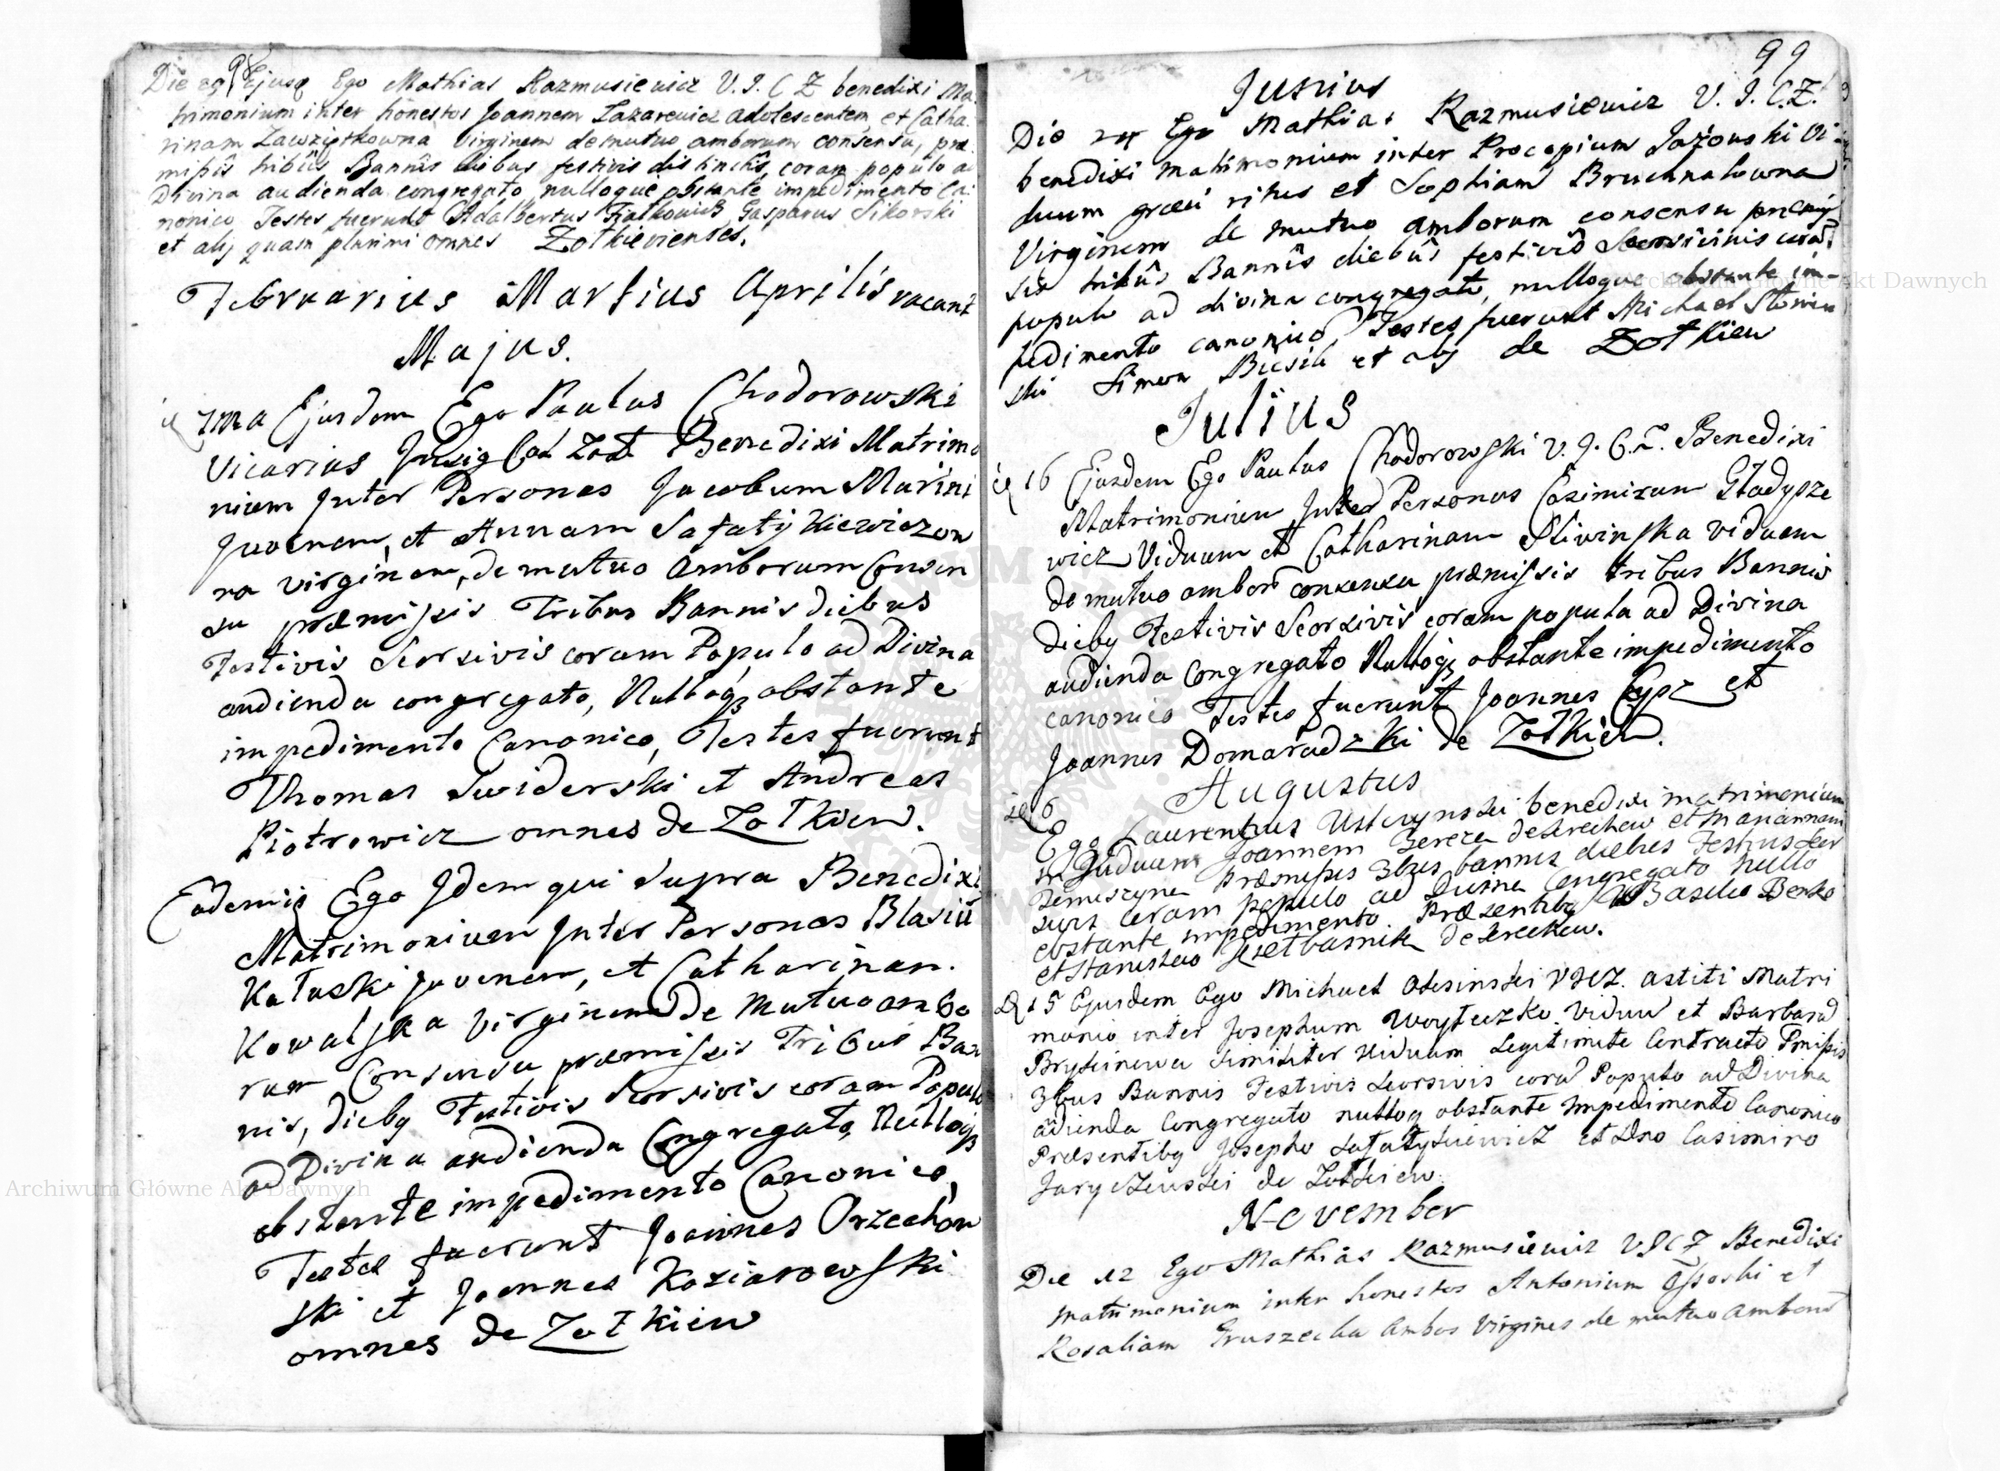 98
Die 29 Ejusq Ego Mathias Razmusiewicz V. I. C Z benedixi Ma
trimonium inter honestos Joannem Lazarewicz adolescentem et Catha
rinam Virginem de mutuo amborum consensu, præ
missis tribus Bannis diebus festivis distinctis, coram populo ad
Divina audienda congregato nulloque obstante impedimento Ca
nonico Testes fuerunt Adalbertus Falkowicz Gasparus Sikorski
et alij quam plurimi omnes Zołkievienses.
Februarius Martius Aprilis vacant
Majus.
7ma Ejusdem Ego Paulus Chodorowski
Vicarius Insig Col Zoł Benedixi Matrimo
nium Inter Personas Jacobum Marini
Juvenem, et Annam Safatyikiewiczow
na virginem, de mutuo Amborum Consen
su præmissis Tribus Bannis diebus
Festivis Seorsivis coram Populo ad Divina
audienda congregato, Nulloqz obstante
impedimento Canonico, Testes fuerunt
Thomas Swiderski et Andreas
Piotrowicz omnes de Zołkiew.
Eademiq Ego Idem qui Supra Benedixi
Matrimonium Inter Personas Blasiu
Kałuski juvenem, et Catharinam
Kowalska virginem De Mutuo ambo
rum Consensu præmissis Tribus Ban
nis, dieby Festivis Seorsivis coram Populo
ad Divina audienda Congregato, Nulloqz
obstante impedimento Canonico,
Testes fuerunt Joannes Orzechow
ski et Joannes Koziarowski
omnes de Zołkiew
99
Junius
Die Ego Mathias Razmusiewicz V. I. C. Z.
benedixi matrimonium inter Procopium Jażowski Vi
duum græci ritus et Sophiam Bruchnalowna
Virginem de mutuo amborum consensu præmis
sis tribus Bannis diebus festivis Seorsivis corã
populo ad divina congregato, nulloque obstante im-
pedimento canonico, Testes fuerunt Michael
ski Simeon et alij de Zołkiew
Julius
16 Ejusdem Ego Paulus Chodorowski V. I. C. Z. Benedixi
Matrimonium Inter Personas Casimirum Gładysze
wicz Viduum et Catharinam Sliwinska viduam
de mutuo ambor consensu præmissis tribus Bannis
dieby Festivis Seorsivis coram populo ad Divina
audienda Congregato Nulloqz obstante impedimento
canonico Testes fuerunt Joannes et
Joannes Domaradzki de Zołkiew.
Augustus
6
Ego Laurentius benedixi matrimonium
Viduum Joannem Bereza de et Mariannam
præmissis 3bus bannis diebus Festivis Seor
sivis coram populo ad Divina Congregato nullo
obstante impedimento. Præsentiby Basilio Benko
et Stanislao de
15 Ejusdem Ego Michael Olesinski VICZ. astiti Matri
monio inter Josephum Woytuszko viduu et Barbarã
similiter viduam Legitimite Contracto Pmissis
3bus Bannis Festivis Seorsivis corã Populo ad Divina
adienda Congregato nulloq obstante Impedimento Canonico
Præsentiby Josepho Safatyikiewicz et Dno Casimiro
de Zołkiew
November
Die 12 Ego Mathias Razmusiewicz VICZ Benedixi
matrimonium inter honestos Antonium et
Rosaliam Gruszecka ambos Virgines de mutuo amborũ
Archiwum Główne Akt Dawnych
Archiwum Główne Akt Dawnych